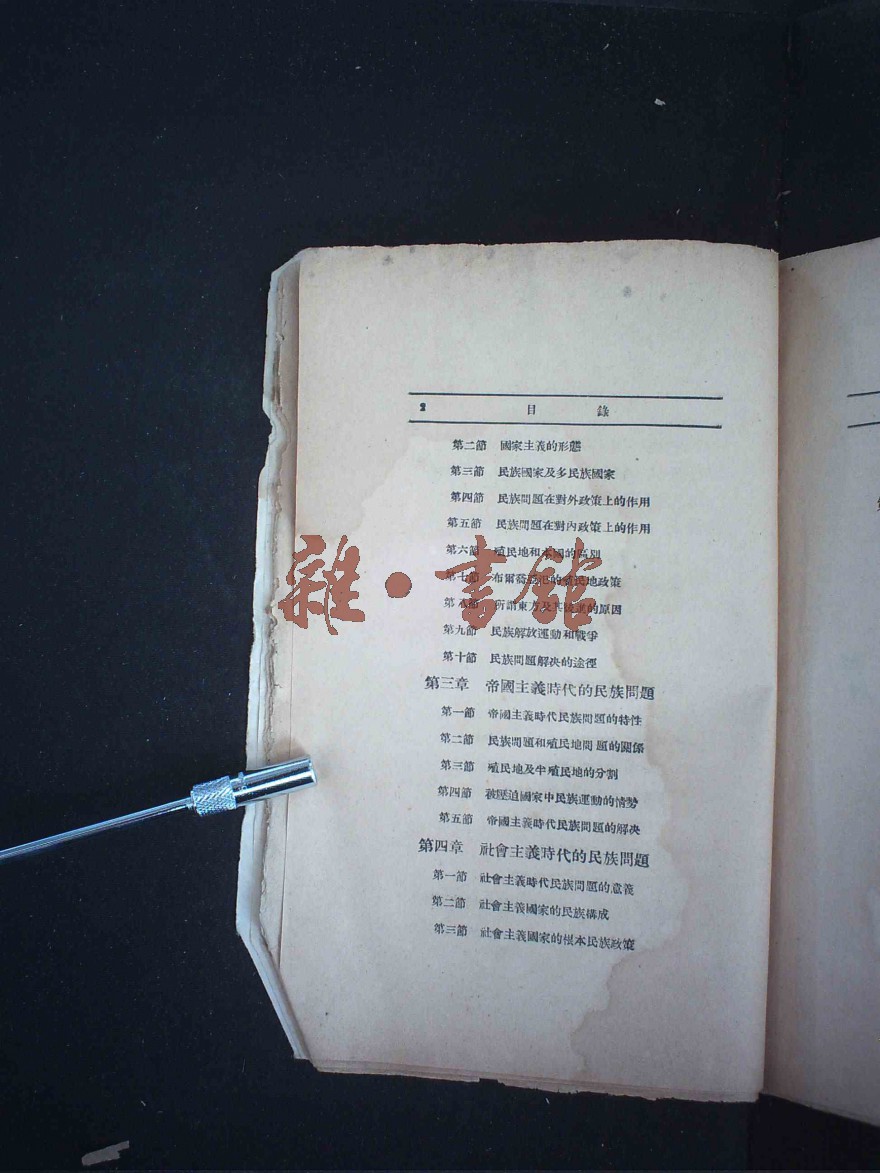 2 目錄
第二節 國家主義的形態
第三節 民族國家及多民族國家
第四節 民族問題在對外政策上的作用
第五節 民族問題在對內政策上的作用
第六節 殖民地和本國的區別
第七節 布爾喬亞氾的殖民地政策
第八節 所謂東方及其被進的原因
第九節 民族解放運動和戰爭
第十節 民族問題解決的途徑
第三章 帝國主義時代的民族問題
第一節 帝國主義時代民族問題的特性
第二節 民族問題和殖民地問題的關係
第三節 殖民地及半殖民地的分割
第四節 被壓迫國家中民族運動的情勢
第五節 帝國主義時代民族問題的解决
第四章 社會主義時代的民族問題
第一節 社會主義時代民族問題的意義
第二節 社會主義國家的民族構成
第三節 社會主義國家的根本民族政策
雜·書館